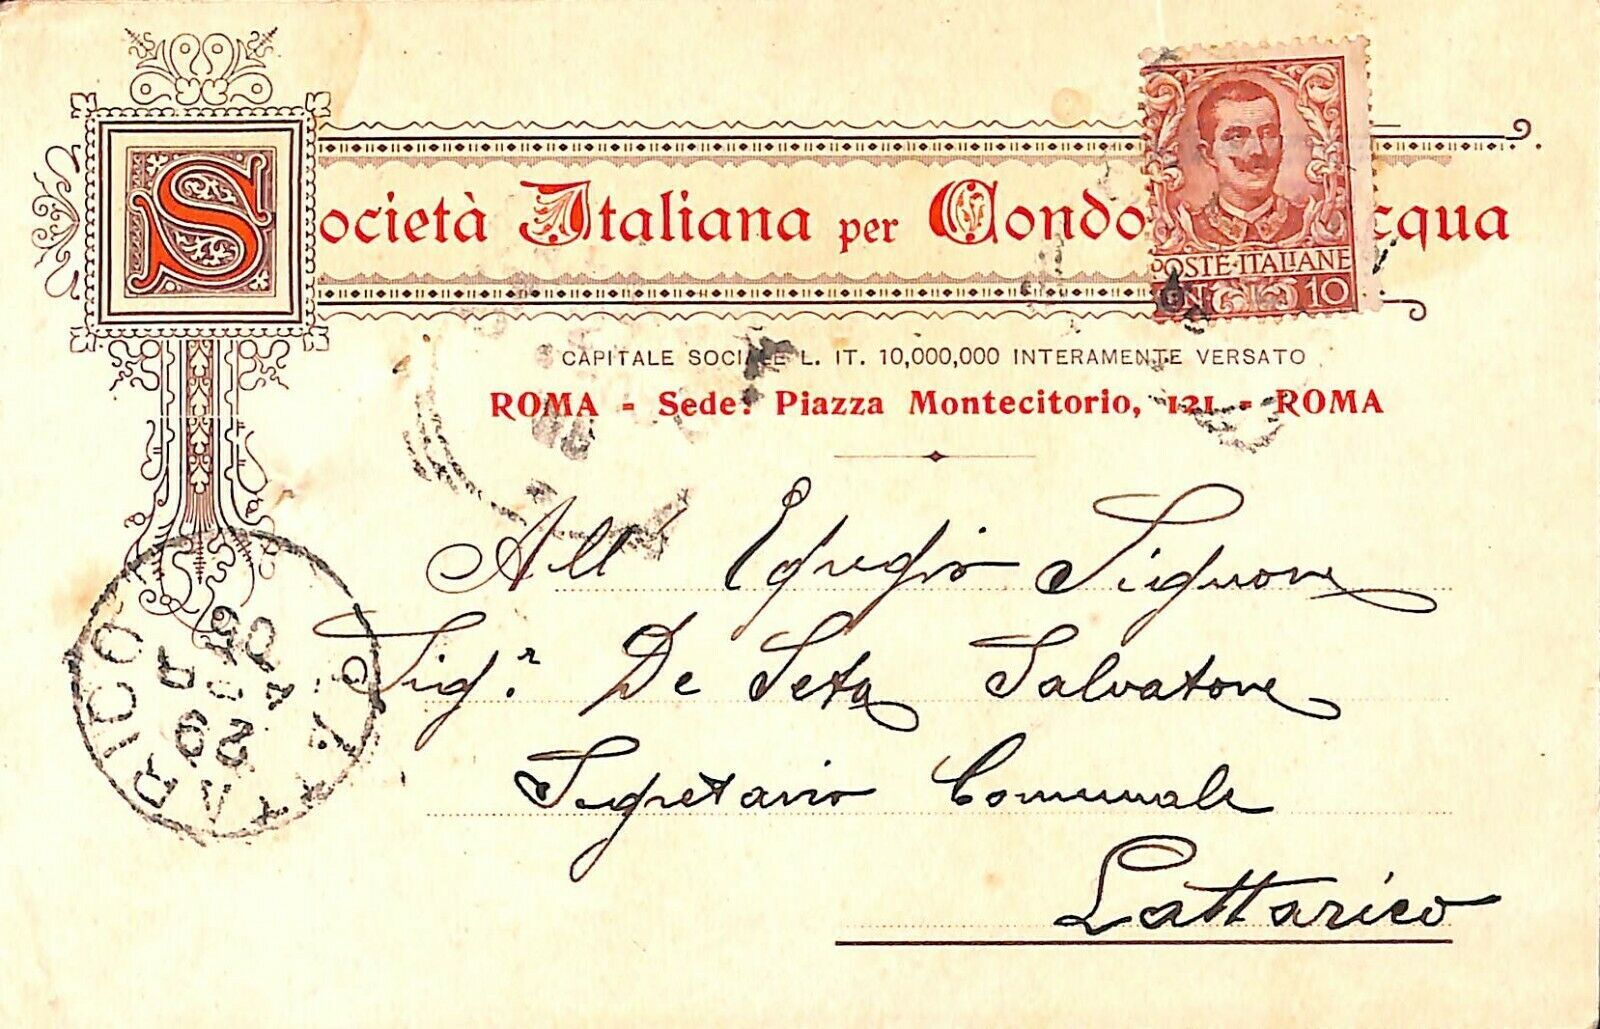 Società Italiana per Condo cqua
POSTE·ITALIANE
10
CAPITALE SOCIALE L. IT. 10,000,000 INTERAMENTE VERSATO
ROMA - Sede: Piazza Montecitorio, 121 - ROMA
All' Egregio Signore
Sig.r De Seta Salvatore
Segretario Comunale
Lattarico
LATTARICO
29
05